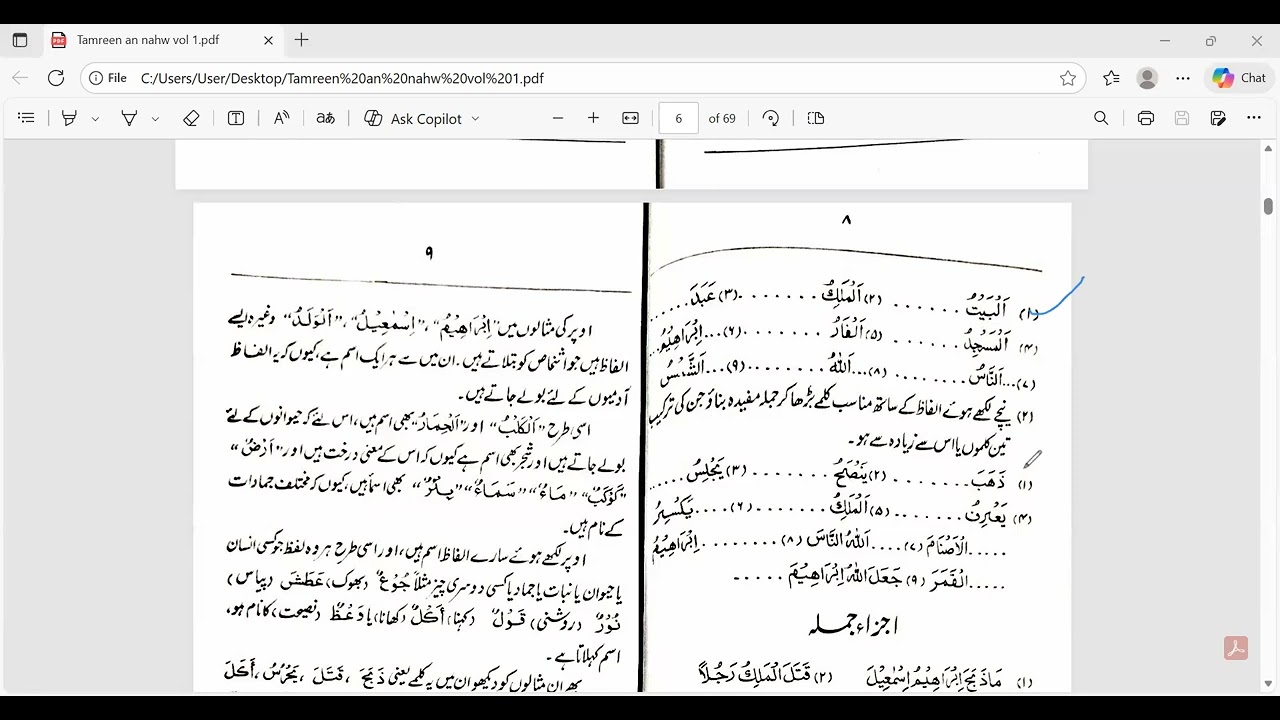 Tamreen an nahw vol 1.pdf
File C:/Users/User/Desktop/Tamreen%20an%20nahw%20vol%201.pdf
Chat
Ask Copilot
6 of 69
۸
(۱) اَلْبَيْتُ . . . . . . (۲) اَلْمَلِكُ . . . . . . . (۳) عَبَدَ . . . .
(۴) اَلْمَسْجِدُ . . . . . . . (۵) اَلْفَأرُ . . . . . . . (۶) ... اِبْرَاهِيْمُ ...
(۷) ... اَلنَّاسُ . . . . . . . (۸) ... اَللّٰهُ . . . . . . . (۹) ... اَلشَّمْسُ
(۲) نیچے لکھے ہوئے الفاظ کے ساتھ مناسب کلمے بڑھا کر جملہ مفیدہ بناؤ جن کی ترکیب
تین کلموں یا اس سے زیادہ سے ہو۔
(۱) ذَهَبَ . . . . . . . (۲) يَنْصَحُ . . . . . . . (۳) يَجْلِسُ . . . . .
(۴) يَعْرِفُ . . . . . . . (۵) اَلْمَلِكُ . . . . . . . (۶) . . . . يَكْسِرُ
..... اَلْاَصْنَامَ (۷) .... اَللّٰهُ النَّاسَ (۸) . . . . . . . . اِبْرَاهِيْمُ
..... اَلْقَمَرَ (۹) جَعَلَ اللّٰهُ اِبْرَاهِيْمَ . . . . .
اجزاء جملہ
(۱) مَاذَبَحَ اِبْرَاهِيْمُ اِسْمٰعِيْلَ (۲) قَتَلَ الْمَلِكُ رَجُلاً
۹
اوپر کی مثالوں میں "اِبْرَاهِيْمُ"، "اِسْمٰعِيْلُ"، "اَلْوَلَدُ" وغیرہ ایسے
الفاظ ہیں جو اشخاص کو بتلاتے ہیں۔ ان میں سے ہر ایک اسم ہے، کیوں کہ یہ الفاظ
آدمیوں کے لئے بولے جاتے ہیں۔
اسی طرح "اَلْكَلْبُ" اور "اَلْحِمَارُ" بھی اسم ہیں، اس لئے کہ حیوانوں کے لئے
بولے جاتے ہیں اور شجر بھی اسم ہے کیوں کہ اس کے معنی درخت ہیں اور "اَرْضٌ"
"كَوْكَبٌ" "مَاءٌ" "سَمَاءٌ" "بِئْرٌ" بھی اسما ہیں، کیوں کہ مختلف جمادات
کے نام ہیں۔
اوپر لکھے ہوئے سارے الفاظ اسم ہیں، اور اسی طرح ہر وہ لفظ جو کسی انسان
یا حیوان یا نبات یا جماد یا کسی دوسری چیز مثلاً جُوْعٌ (بھوک) عَطَشٌ (پیاس)
نُوْرٌ (روشنی) قَوْلٌ (کہنا) اَكْلٌ (کھانا) یا وَعْظٌ (نصیحت) کا نام ہو،
اسم کہلاتا ہے۔
پھر ان مثالوں کو دیکھو ان میں یہ کلمے یعنی ذَبَحَ، قَتَلَ، يَحْرُسُ، اَكَلَ